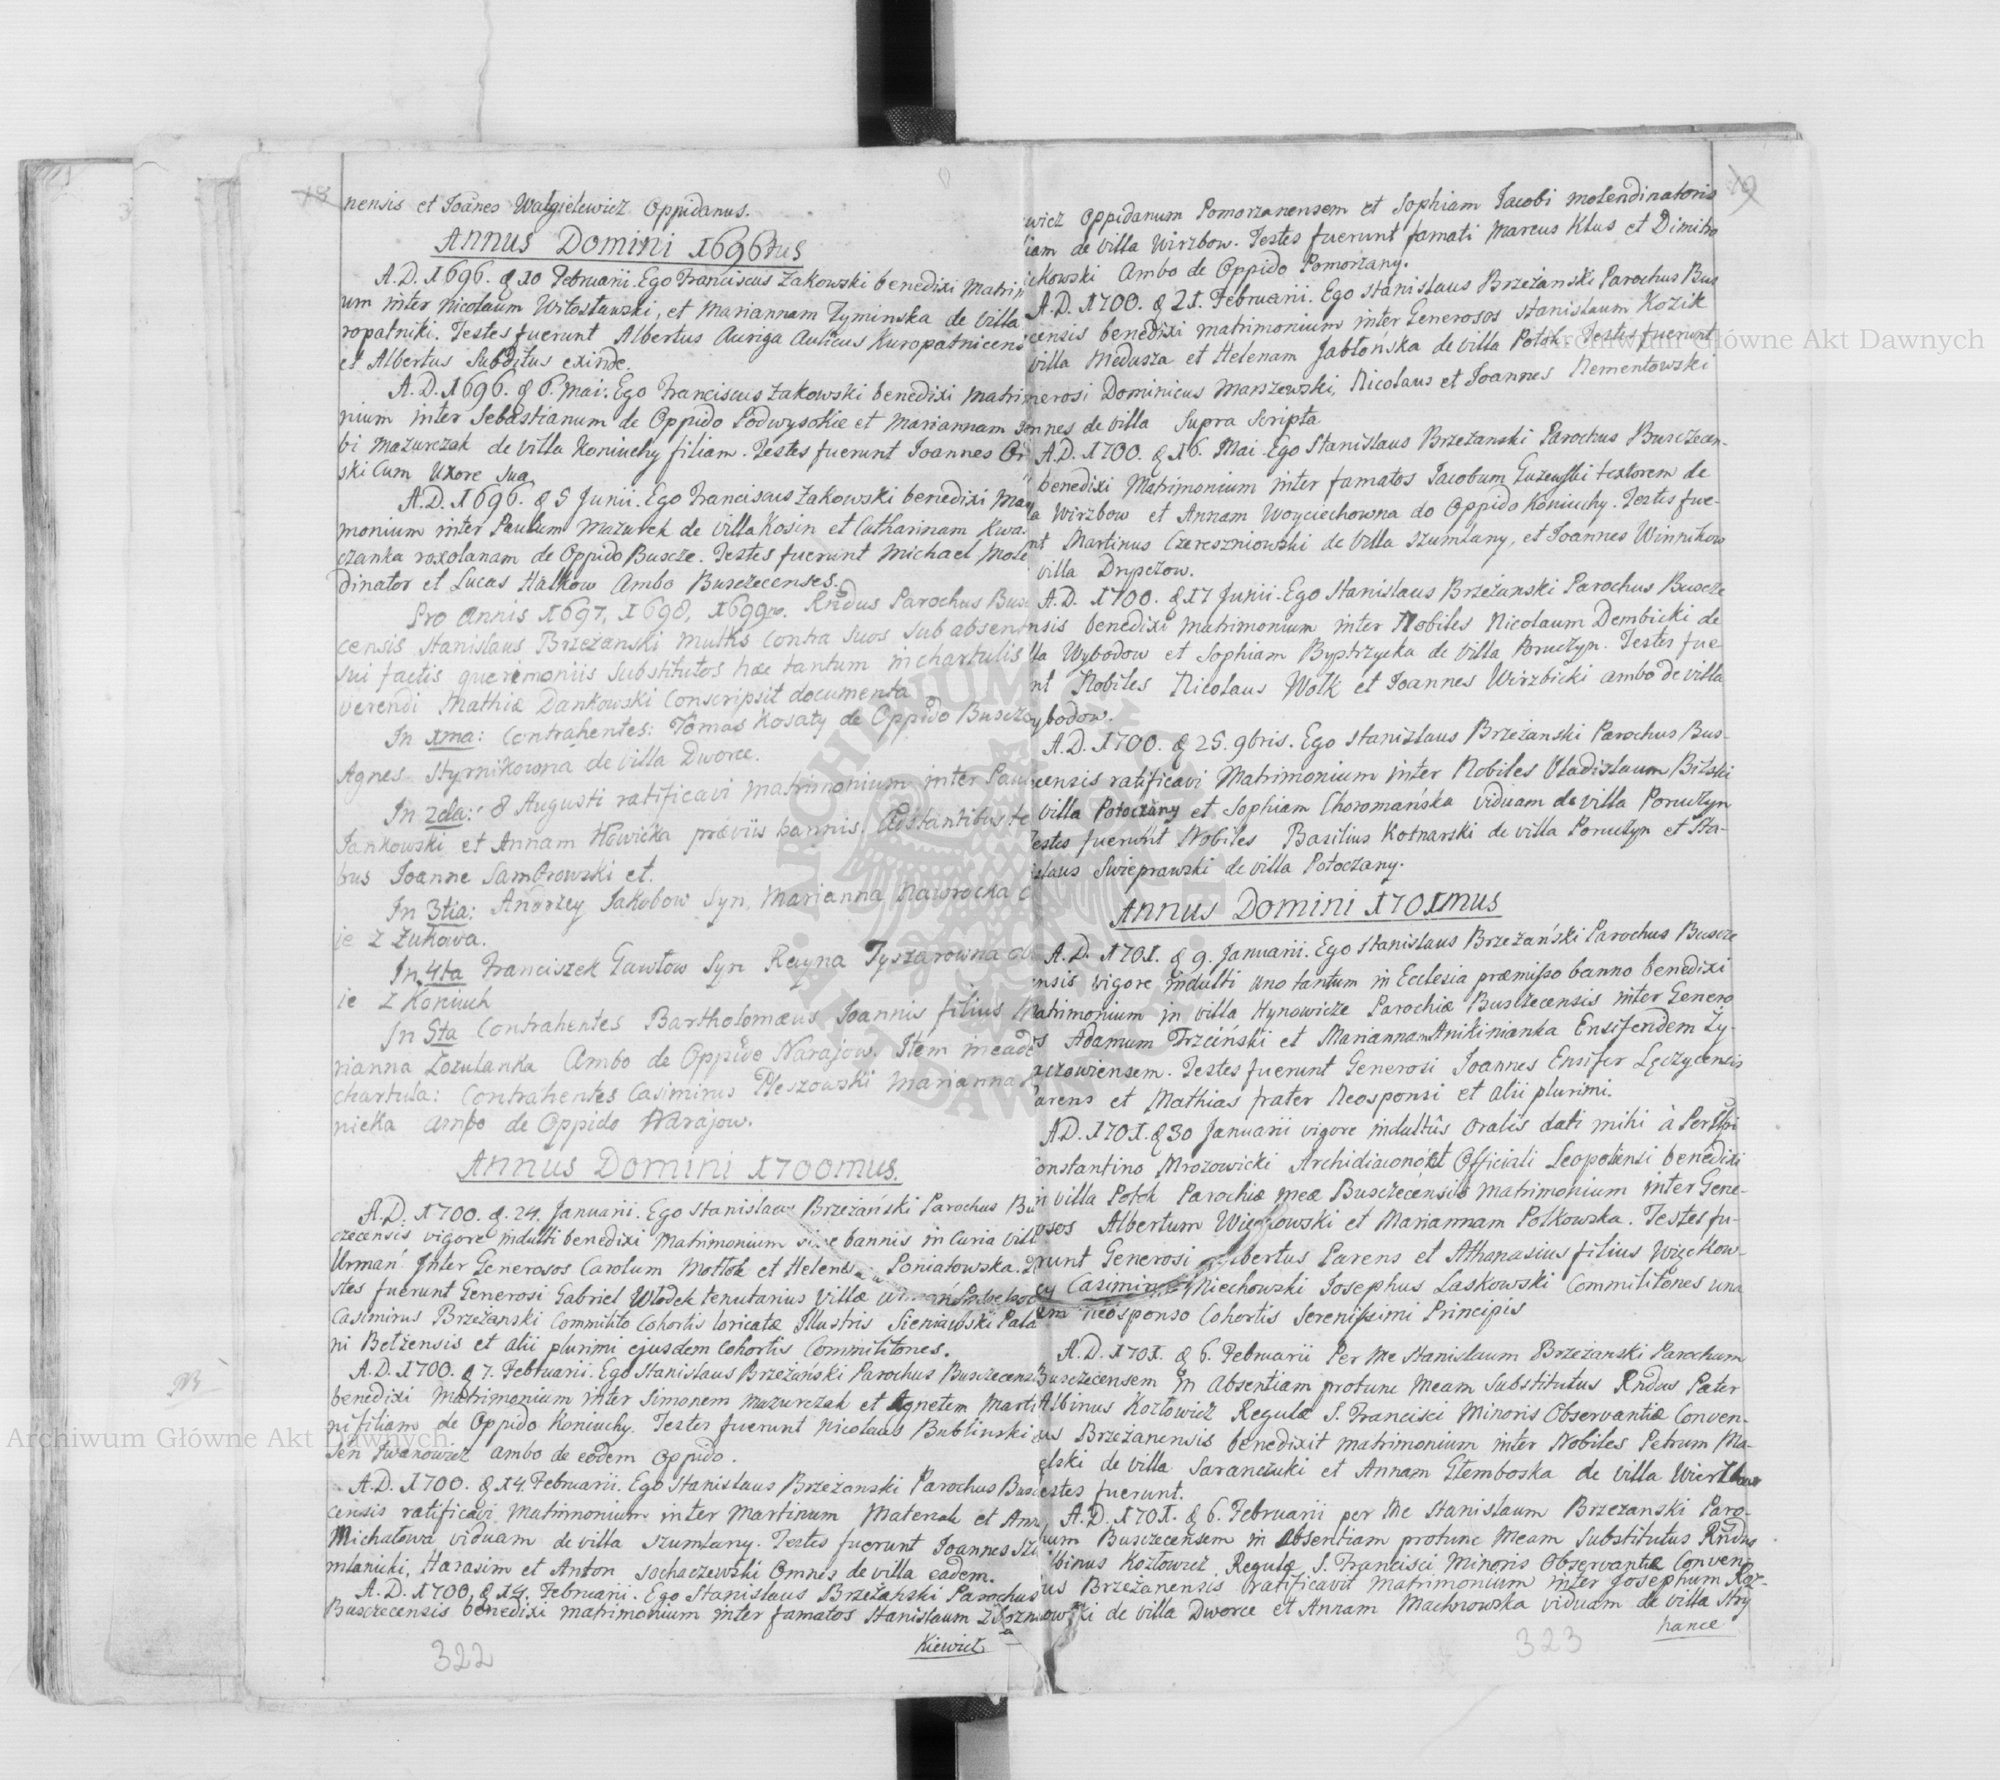 18
nensis et Joanes Walgielewicz Oppidanus.
Annus Domini 1696tus
A.D. 1696. & 10 Februarii. Ego Franciscus Żakowski benedixi Matri
um inter Nicolaum Witosławski, et Mariannam Zyminska de Villa
ropatniki. Testes fuerunt Albertus Auriga Aulicus Kuropatnicens
et Albertus Subditus exinde.
A.D. 1696. & 6. Mai. Ego Franciscus Żakowski benedixi matri
nium inter Sebastianum de Oppido Podwysokie et Mariannam
bi Mazurczak de Villa Koniuchy filiam. Testes fuerunt Joannes
ski Cum Uxore Sua
A.D. 1696. & 5 Junii. Ego Franciscus Żakowski benedixi Ma
monium inter Paulum Mazurek de Villa Kosin et Catharinam Kwa
czanka roxolanam de Oppido Buscze. Testes fuerunt Michael Mole
dinator et Lucas Halkow Ambo Busczecenses.
Pro Annis 1697, 1698, 1699no. Rndus Parochus Bus
censis Stanislaus Brzeżanski multis Contra Suos Sub absen
sui factis querimoniis Substitutos hæ tantum in chartulis
verendi Mathiæ Dankowski Conscripsit documenta
In 1ma: Contrahentes: Tomas Kosaty de Oppido Buscze
Agnes Styrnikowna de Villa Dworce.
In 2da: 8 Augusti ratificavi matrimonium inter Pau
Jankowski et Annam Howicka præviis bannis. Adstantibus te
bus Joanne Sambrowski et.
In 3tia: Andrzey Jakobow Syn, Marianna Nawrocka
ie z Żukowa.
In 4ta Franciszek Gawłow Syn Regna Tyszarowna
ie z Koniuch
In 5ta Contrahentes Bartholomæus Joannis filius
rianna Łozulanka Ambo de Oppido Narajow. Item in eade
chartula: Contrahentes Casimirus Pleszowski Marianna
nicka ambo de Oppido Narajow.
Annus Domini 1700mus.
A.D. 1700. & 24. Januarii. Ego Stanislaus Brzeżański Parochus Bu
czecensis vigore indulti benedixi Matrimonium sine bannis in Curia vill
Urmań Inter Generosos Carolum Mottok et Helenam Poniatowska.
stes fuerunt Generosi Gabriel Włodek tenutarius Villæ
Casimirus Brzeżanski Commilito Cohortis loricatæ Illustris Sieniawski Pala
ni Bełzensis et alii plurimi ejusdem Cohortis Commilitones.
A.D. 1700. & 7. Februarii. Ego Stanislaus Brzeżański Parochus Busczecens
benedixi Matrimonium inter Simonem Mazurczak et Agnetem Marti
ni filiam de Oppido Koniuchy. Testes fuerunt Nicolaus Bublinski
Sen Iwanowicz ambo de eodem Oppido.
A.D. 1700. & 14. Februarii. Ego Stanislaus Brzeżanski Parochus Bus
censis ratificavi Matrimonium inter Martinum Materak et Ann
Michałowa viduam de villa Szumlany. Testes fuerunt Joannes Szu
mlanicki, Harasim et Anton Sochaczewski Omnes de villa eadem.
A.D. 1700, & 14. Februarii. Ego Stanislaus Brzeżanski Parochus
Busczecensis benedixi matrimonium inter famatos Stanislaum
Kiewicz
322
19
wicz Oppidanum Pomorzanensem et Sophiam Jacobi molendinatoris
iam de villa Wirzbow. Testes fuerunt famati Marcus Klus et Dimitro
ckowski Ambo de Oppido Pomorzany.
A.D. 1700. & 21. Februarii. Ego Stanislaus Brzeżanski Parochus Bus
censis benedixi matrimonium inter Generosos Stanislaum Kozik
villa Meduza et Helenam Jabłonska de villa Potok. Testes fuerunt
nerosi Dominicus Marszewski, Nicolaus et Joannes Nementowski
nnes de villa Supra Scripta
A.D. 1700. & 16. Mai. Ego Stanislaus Brzeżanski Parochus Busczecen-
benedixi Matrimonium inter famatos Jacobum Guzewski textorem de
a Wirzbow et Annam Woyciechowna do Oppido Koniuchy. Testes fue-
nt Martinus Czereszniowski de Villa Szumlany, et Joannes Winnikow
villa Dryszczow.
A.D. 1700. & 17 Junii. Ego Stanislaus Brzeżanski Parochus Buscze
nsis benedixi matrimonium inter Nobiles Nicolaum Dembicki de
la Wybodow et Sophiam Bystrzycka de Villa Ponutzyn. Testes fue-
nt Nobiles Nicolaus Wolk et Joannes Wirzbicki ambo de villa
ybodow.
A.D. 1700. & 25. 9bris. Ego Stanislaus Brzeżanski Parochus Bus-
censis ratificavi Matrimonium inter Nobiles Vladislaum Bilski
villa Potoczany et Sophiam Choromańska viduam de villa Ponutzyn
estes fuerunt Nobiles Basilius Kotnarski de villa Ponutzyn et Sta-
islaus Swieprawski de villa Potoczany.
Annus Domini 1701mus
A.D. 1701. & 9. Januarii. Ego Stanislaus Brzeżański Parochus Buscze
nsis vigore indulti uno tantum in Ecclesia præmisso banno benedixi
atrimonium in villa Hynowicze Parochiæ Busczecensis inter Genero
s Adamum Trzciński et Mariannam Anikinianka Ensiferidem Ży-
aczowiensem. Testes fuerunt Generosi Joannes Ensifer Lęczycensis
arens et Mathias frater Neosponsi et alii plurimi.
A.D. 1701. & 30 Januarii vigore indultûs oralis dati mihi à Perllri
onstantino Mrozowicki Archidiacono et Officiali Leopoliensi benedixi
in villa Potok Parochiæ meæ Busczecensis Matrimonium inter Gene-
osos Albertum Więckowski et Mariannam Polkowska. Testes fu-
runt Generosi Albertus Parens et Athanasius filius Więckow-
cy Casimirus Niechowski Josephus Laskowski Commilitones una
um neosponso Cohortis Serenissimi Principis
A.D. 1701. & 6. Februarii Per Me Stanislaum Brzeżanski Parochum
Busczecensem in Absentiam protunc Meam Substitutus Rndus Pater
Albinus Kozłowicz Regulæ S. Francisci Minoris Observantiæ Conven-
us Brzeżanensis benedixit matrimonium inter Nobiles Petrum Ma-
elski de villa Saranczuki et Annam Glemboska de villa
estes fuerunt.
A.D. 1701. & 6. Februarii per Me Stanislaum Brzezanski Paro-
hum Busczecensem in Absentiam protunc Meam Substitutus Rndus
lbinus Kozłowicz Regulæ S. Francisci Minoris Observantiæ Conven
us Brzeżanensis ratificavit Matrimonium inter Josephum Koz-
łowski de villa Dworce et Annam Machnowska viduam de villa Stry
hance
323
Archiwum Główne Akt Dawnych
Archiwum Główne Akt Dawnych
ARCHIWUM GŁÓWNE AKT DAWNYCH